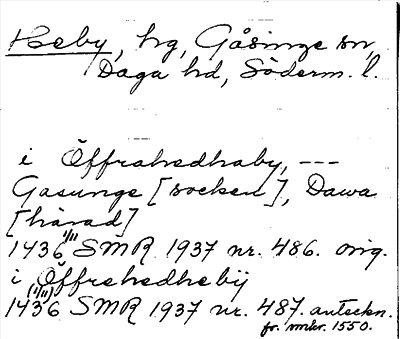 Heby, hg, Gåsinge sn,
Daga hd, Söderm. l.
i Öffrahedhaby, ---
Gasunge [socken], Dawa
[härad]
1436 1/11 SMR 1937 nr. 486. orig.
i Öffrehedheby
1436 (1/11) SMR 1937 nr. 487. anteckn.
fr. mitten 1550.